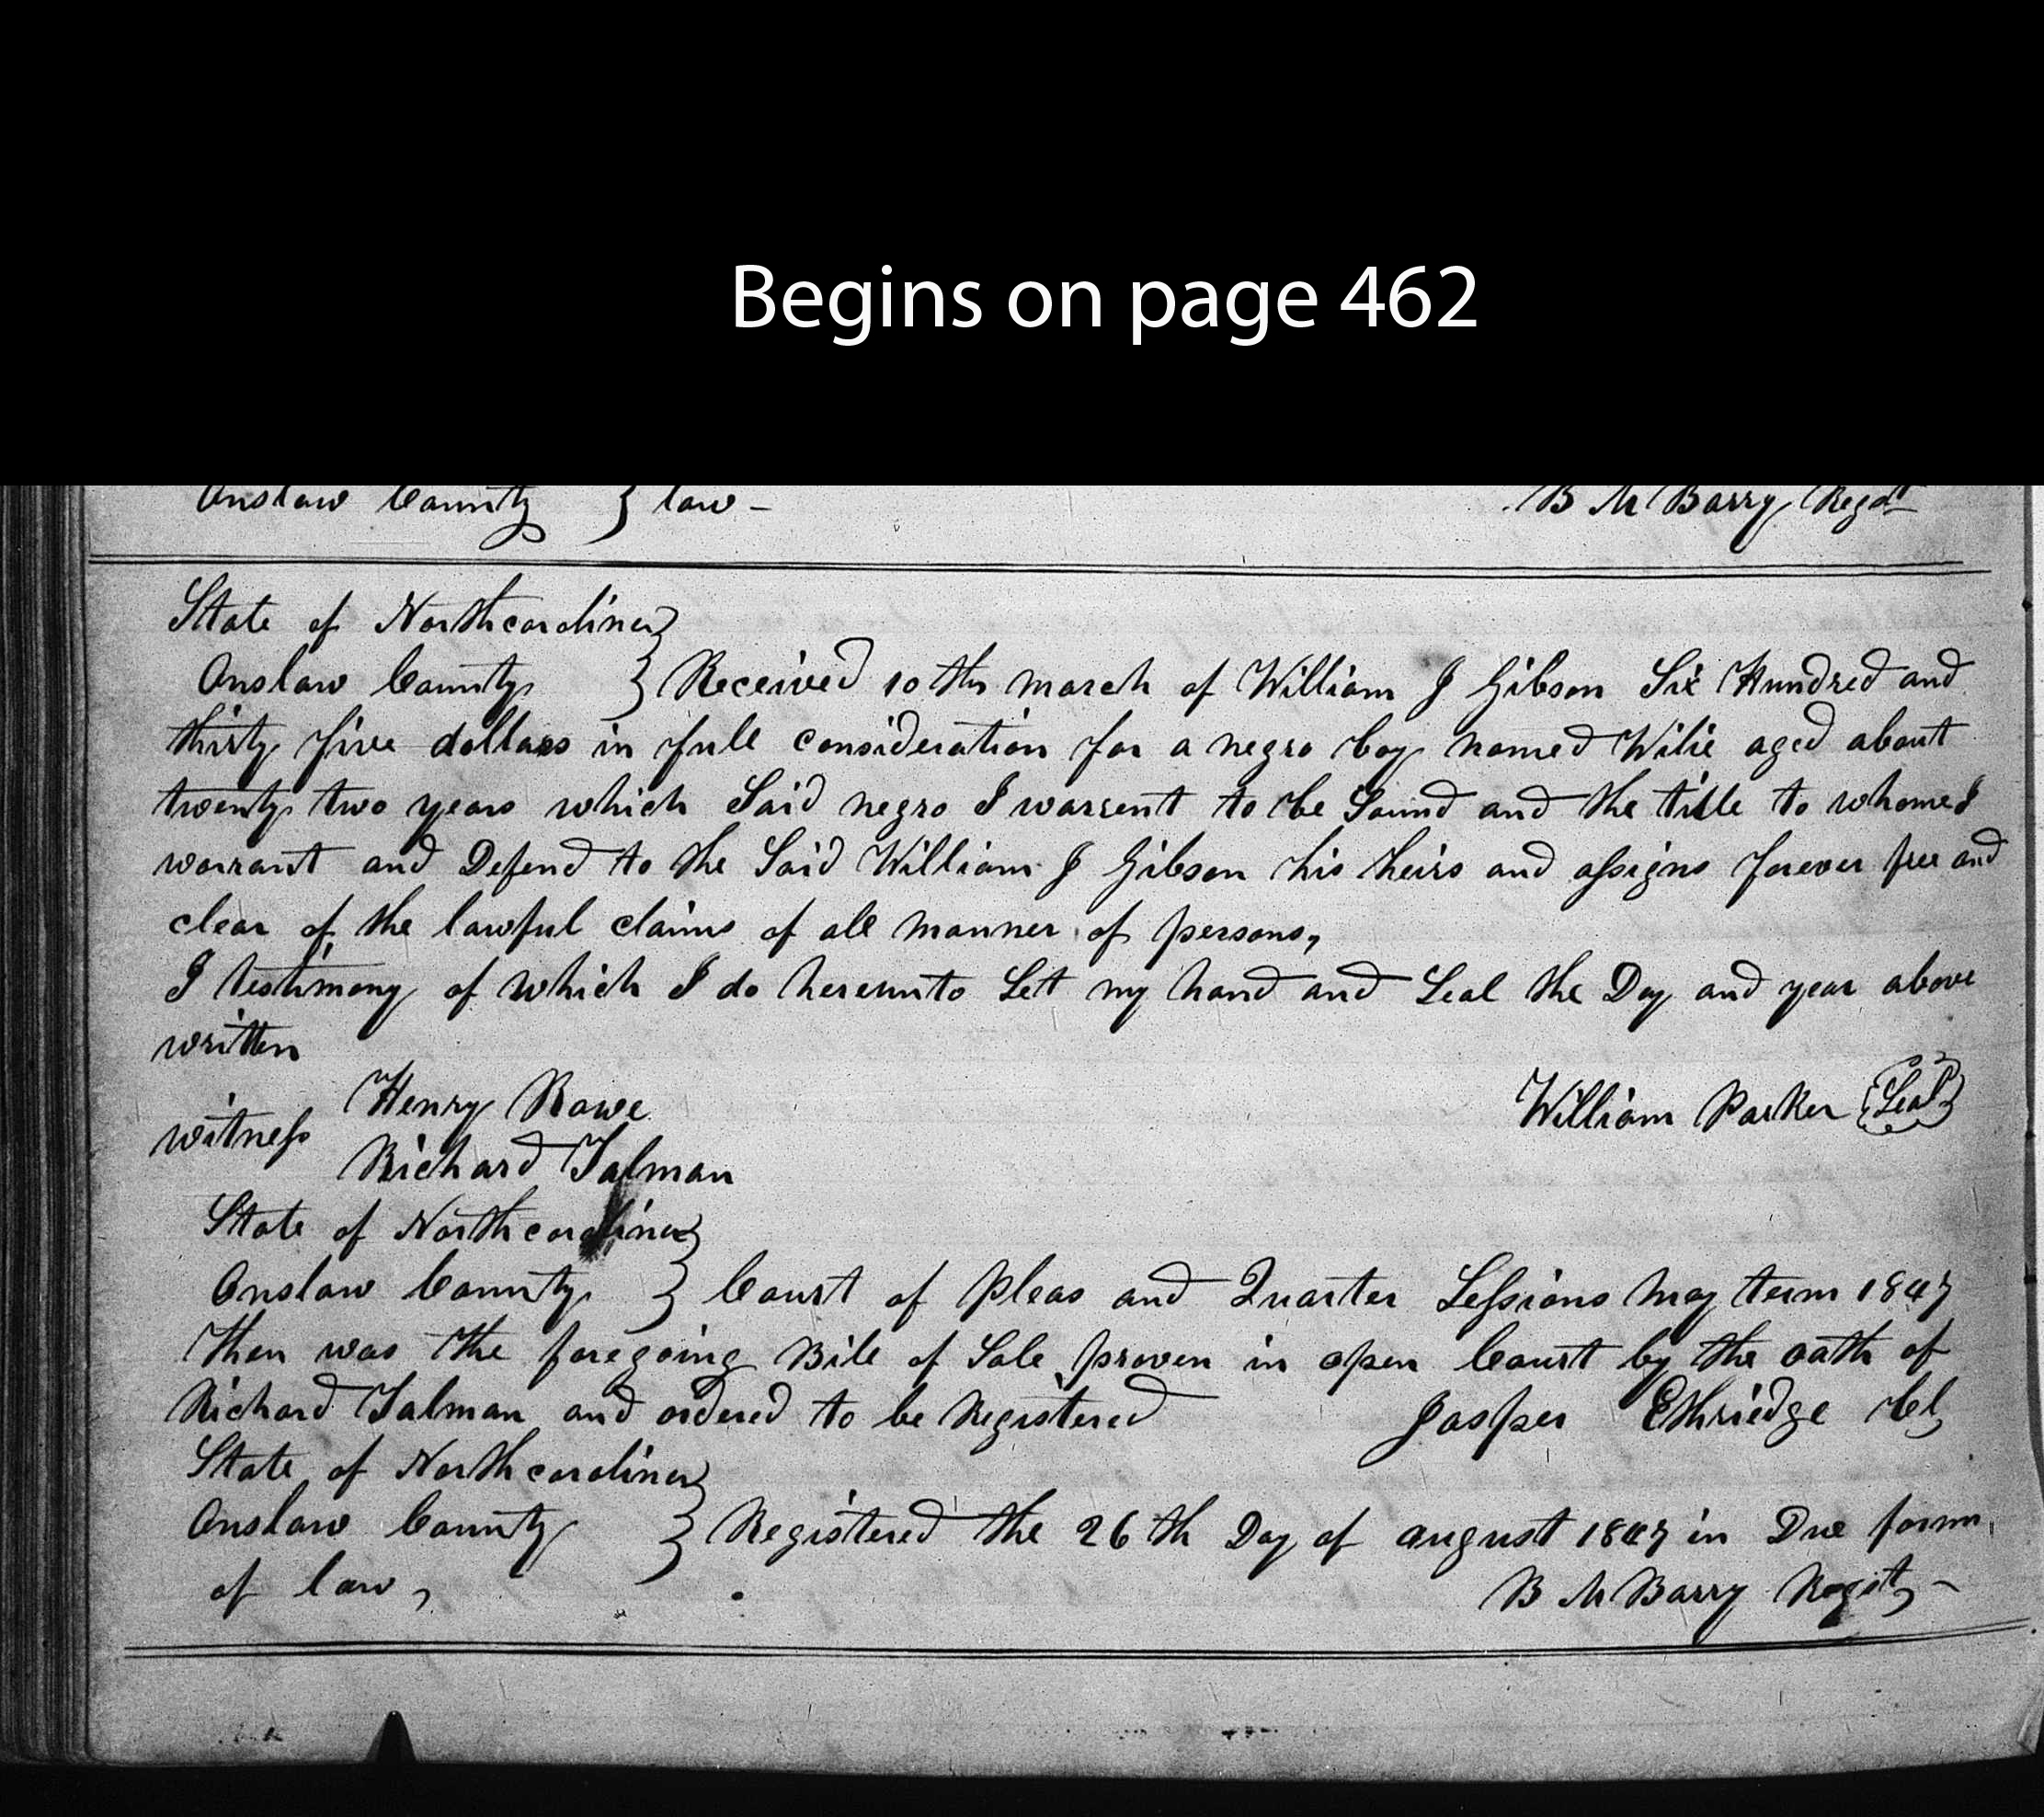 Begins on page 462
Onslow County } law - B M Barry Regst
State of Northcarolina }
Onslow County } Received 10th march of William J Gibson Six Hundred and
thirty five dollars in full consideration for a negro boy named Wilie aged about
twenty two years which Said negro I warrent to be Sound and the title to whome I
warrant and Defend to the Said William J Gibson his heirs and assigns forever free and
clear of the lawful claims of all manner of persons,
I testimony of which I do hereunto Set my hand and Seal the Day and year above
written
Henry Rowe William Parker {Seal}
witness
Richard Talman
State of Northcarolina }
Onslow County } Court of Pleas and Quarter Sessions May term 1847
Then was the foregoing Bill of Sale proven in open Court by the oath of
Richard Talman and ordered to be Registered Jasper Ethriedge Cl
State of Northcarolina }
Onslow County } Registered the 26th Day of august 1847 in Due form
of law, B M Barry Regist